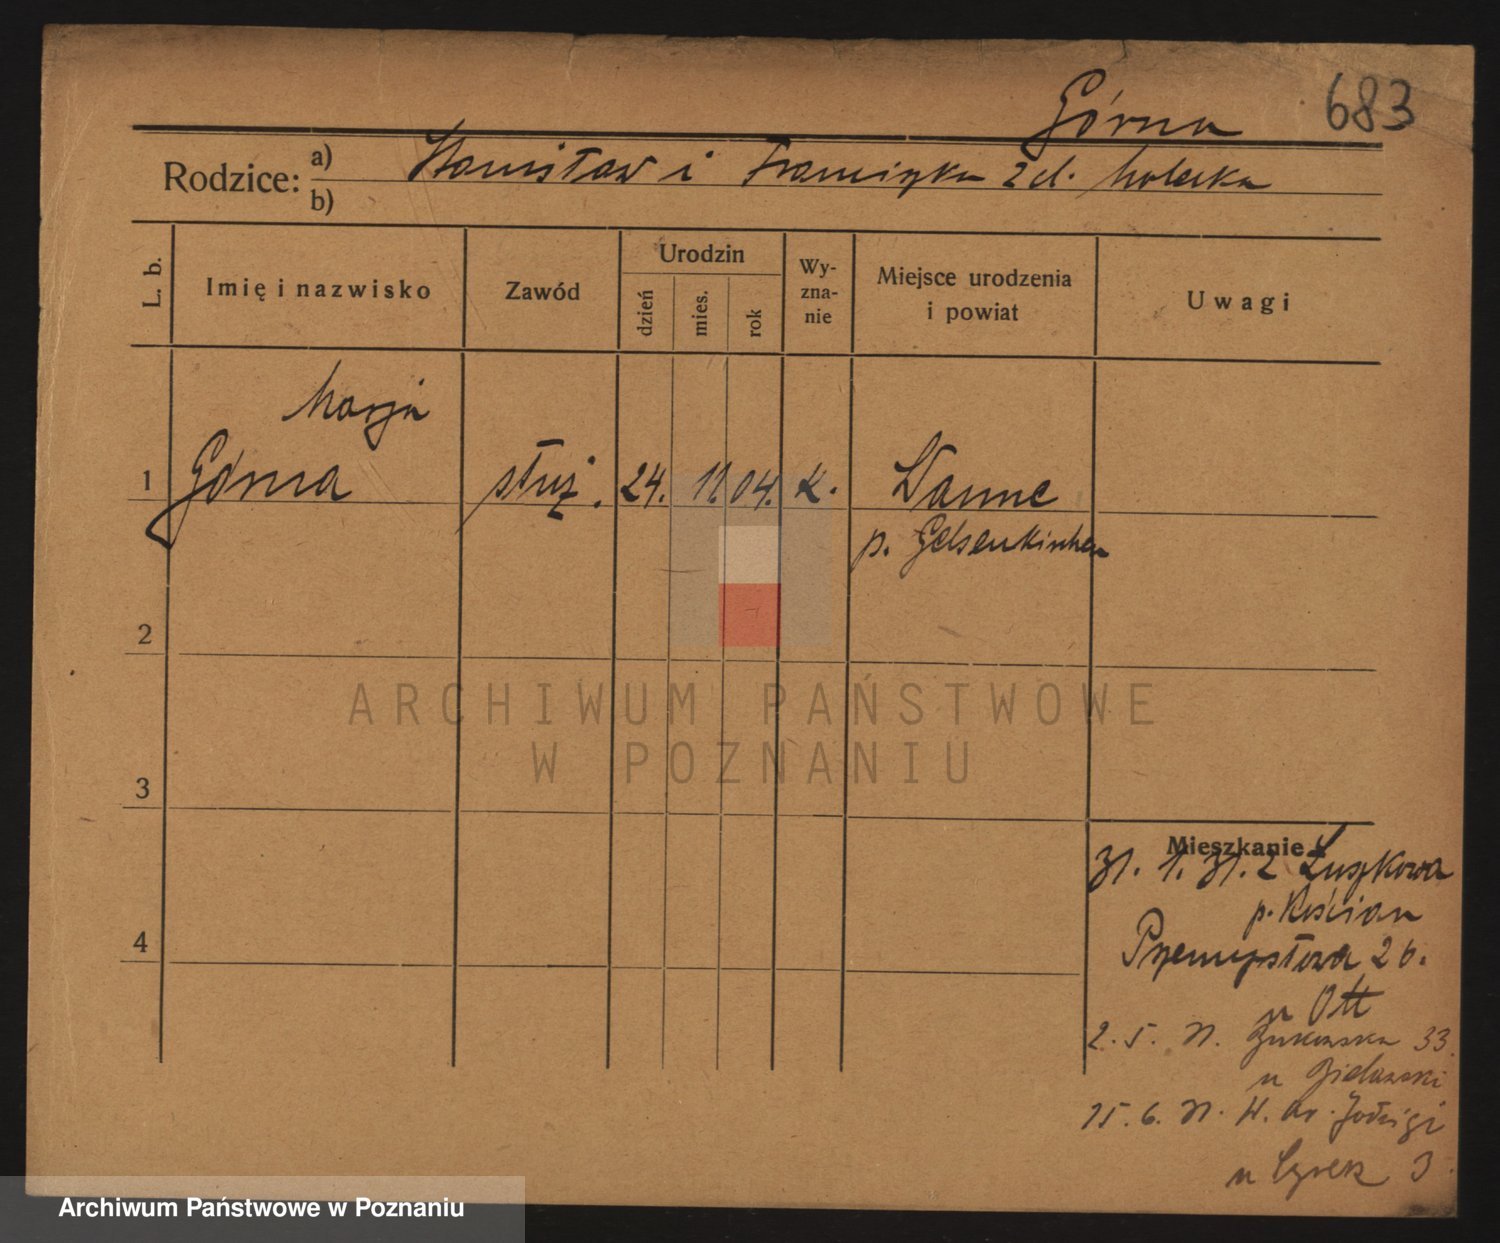 Górna 683
Rodzice: a) Stanisław i Franciszka zd.
b)
L. b.
Imię i nazwisko
Zawód
Urodzin
dzień
mies.
rok
Wy-
zna-
nie
Miejsce urodzenia
i powiat
Uwagi
Marja
1 Górna służ. 24. 11. 04. k. Wanne
p. Gelsenkirchen
2
ARCHIWUM PAŃSTWOWE
W POZNANIU
3
Mieszkanie
31. 1. 31. z
p. Kościan
Przemysłowa 26.
u Ott
2. 5. 31. 33
u
15. 6. 31.
u 3
4
Archiwum Państwowe w Poznaniu